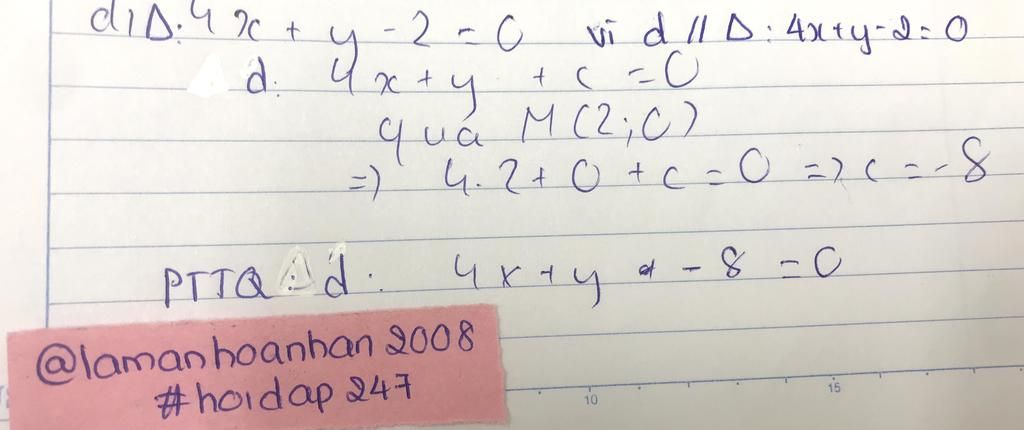 d) Δ: 4x + y - 2 = 0 vì d // Δ: 4x+y-2=0
d: 4x + y + c = 0
qua M(2;0)
=) 4.2 + 0 + c = 0 => c = -8
PTTQ: d: 4x + y - 8 = 0
@lamanhoanhan2008
#hoidap247
10
15